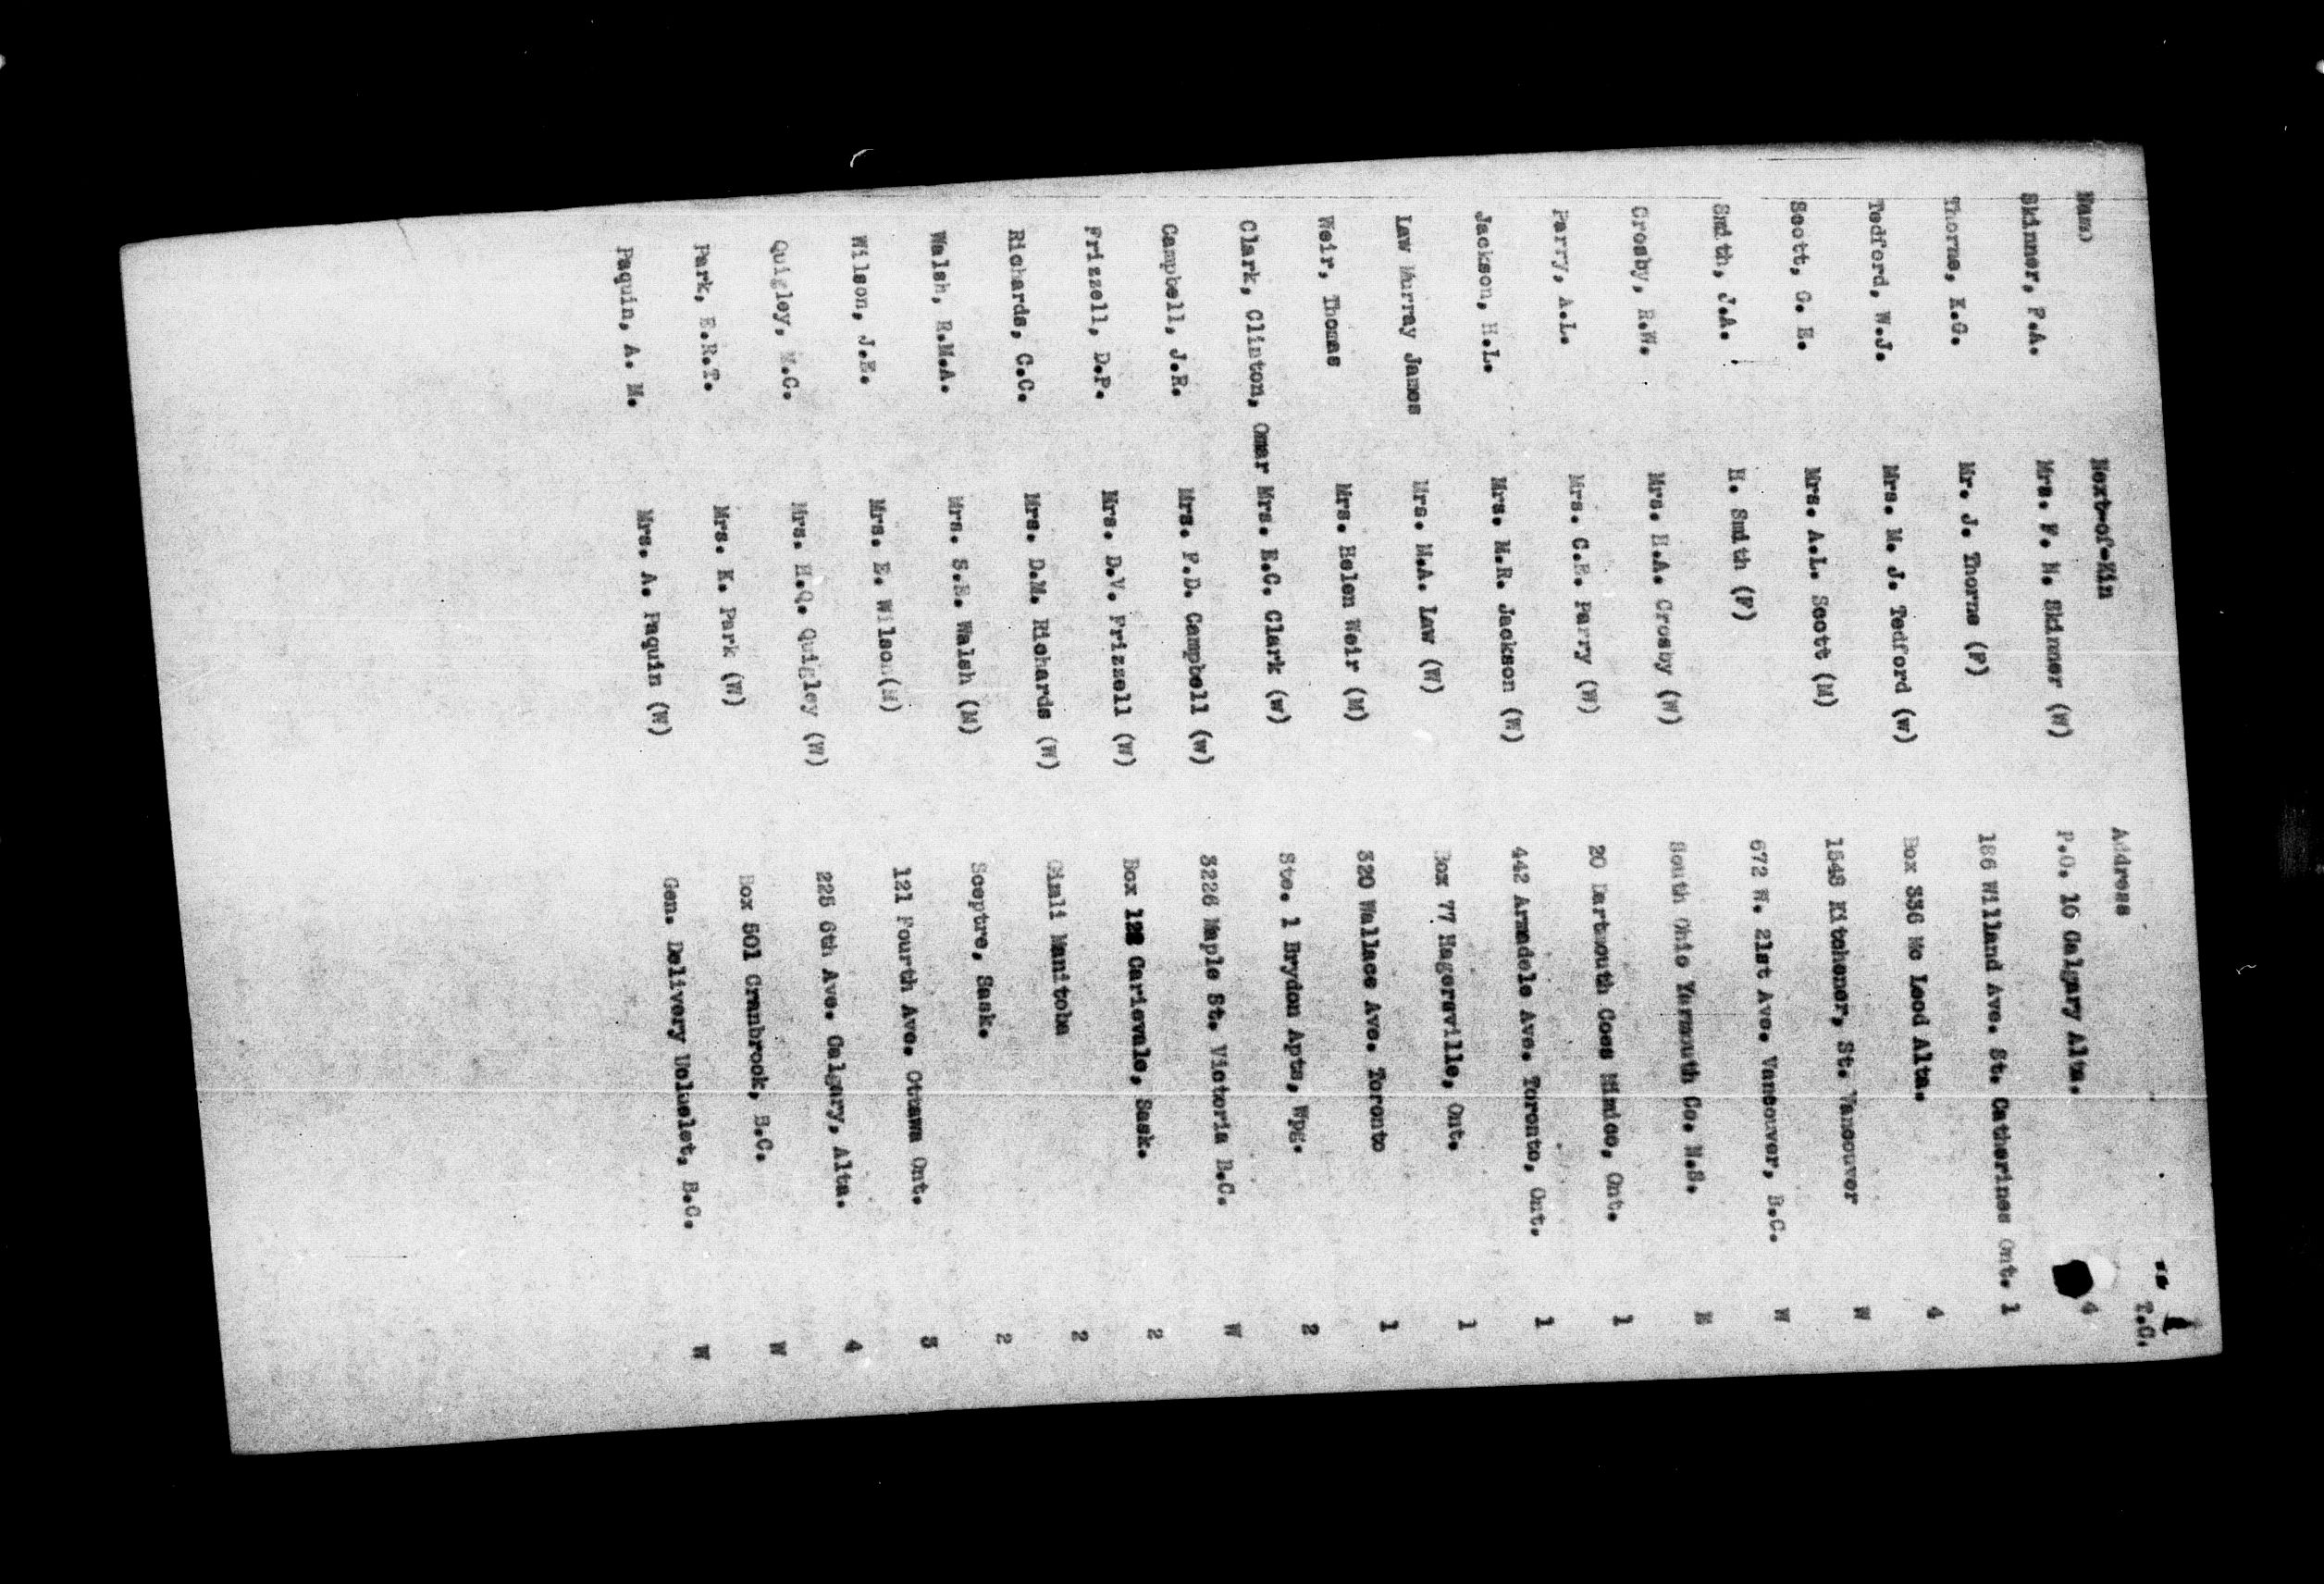 Name Next-of-Kin Address T.C.
Skinner, F.A. Mrs. F. N. Skinner (W) P.O. 16 Calgary Alta. 4
Thorne, K.G. Mr. J. Thorne (F) 186 Willand Ave. St. Catherines Ont. 1
Tedford, W.J. Mrs. M. J. Tedford (w) Box 336 Mc Leod Alta. 4
Scott, G. E. Mrs. A.L. Scott (M) 1848 Kitchener, St. Vancouver W
Smith, J.A. H. Smith (F) 672 W. 21st Ave. Vancouver, B.C. W
Crosby, R.W. Mrs. H.A. Crosby (W) South Ohio Yarmouth Co. N.S. E
Parry, A.L. Mrs. C.E. Parry (W) 20 Dartmouth Coes Mimico, Ont. 1
Jackson, H.L. Mrs. M.R. Jackson (W) 442 Armadele Ave. Toronto, Ont. 1
Law Murray James Mrs. M.A. Law (W) Box 77 Hagersville, Ont. 1
Weir, Thomas Mrs. Helen Weir (M) 320 Wallace Ave. Toronto 1
Clark, Clinton, Omar Mrs. E.C. Clark (w) Ste. 1 Brydon Apts, Wpg. 2
Campbell, J.R. Mrs. F.D. Campbell (w) 3226 Maple St. Victoria B.C. W
Frizzell, D.P. Mrs. D.V. Frizzell (W) Box 122 Carievale, Sask. 2
Richards, C.C. Mrs. D.M. Richards (W) Gimli Manitoba 2
Walsh, R.M.A. Mrs. S.E. Walsh (M) Sceptre, Sask. 2
Wilson, J.E. Mrs. E. Wilson(M) 121 Fourth Ave. Ottawa Ont. 3
Quigley, M.C. Mrs. H.Q. Quigley (W) 225 6th Ave. Calgary, Alta. 4
Park, E.R.T. Mrs. K. Park (W) Box 501 Cranbrook, B.C. W
Paquin, A. M. Mrs. A. Paquin (W) Gen. Delivery Ucluelet, B.C. W